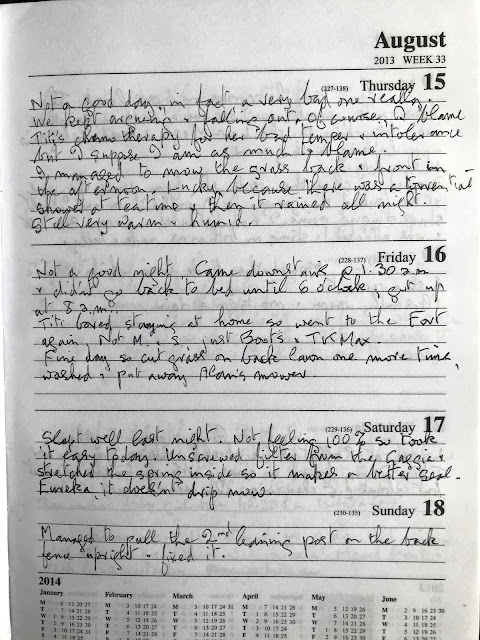 August
2013 WEEK 33
(227-138) Thursday 15
Not a good day, in fact a very bad one really,
We kept arguing & falling out. Of course, I blame
Titi's chemotherapy for her bad temper & intolerance
but I suppose I am as much to blame.
I managed to mow the grass back & front in
the afternoon. Lucky, because there was a torrential
shower at teatime & then it rained all night.
Still very warm & humid.
(228-137) Friday 16
Not a good night. Came downstairs @ 1.30 a.m
& didn't go back to bed until 6 o'clock, got up
at 8 a.m.
Titi bored staying at home so went to the Fort
again, Not M & S, just Boots & TK Max.
Fine day so cut grass on back lawn one more time,
washed & put away Alan's mower.
(229-136) Saturday 17
Slept well last night. Not feeling 100% so took
it easy today. Unscrewed filter from the Gaggia &
stretched the spring inside so it makes a better seal.
Eureka, it doesn't drip now.
(230-135) Sunday 18
Managed to pull the 2nd leaning post on the back
fence upright & fixed it.
2014
January February March April May June
M 6 13 20 27 M 3 10 17 24 M 3 10 17 24 31 M 7 14 21 28 M 5 12 19 26 M 2 9 16 23 30
T 7 14 21 28 T 4 11 18 25 T 4 11 18 25 T 1 8 15 22 29 T 6 13 20 27 T 3 10 17 24
W 1 8 15 22 29 W 5 12 19 26 W 5 12 19 26 W 2 9 16 23 30 W 7 14 21 28 W 4 11 18 25
T 2 9 16 23 30 T 6 13 20 27 T 6 13 20 27 T 3 10 17 24 T 1 8 15 22 29 T 5 12 19 26
F 3 10 17 24 31 F 7 14 21 28 F 7 14 21 28 F 4 11 18 25 F 2 9 16 23 30 F 6 13 20 27